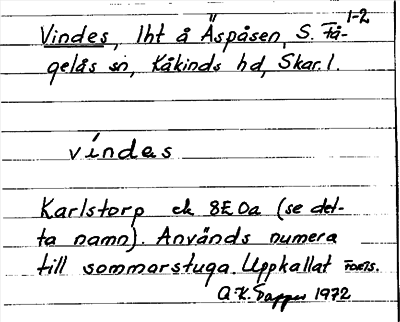 1-2
Vindes, lht å Äspåsen, S. Få-
gelås sn, Kåkinds hd, Skar. l.
vindes
Karlstorp ek 8E0a (se det-
ta namn). Används numera
till sommarstuga. Uppkallat FORTS.
1972